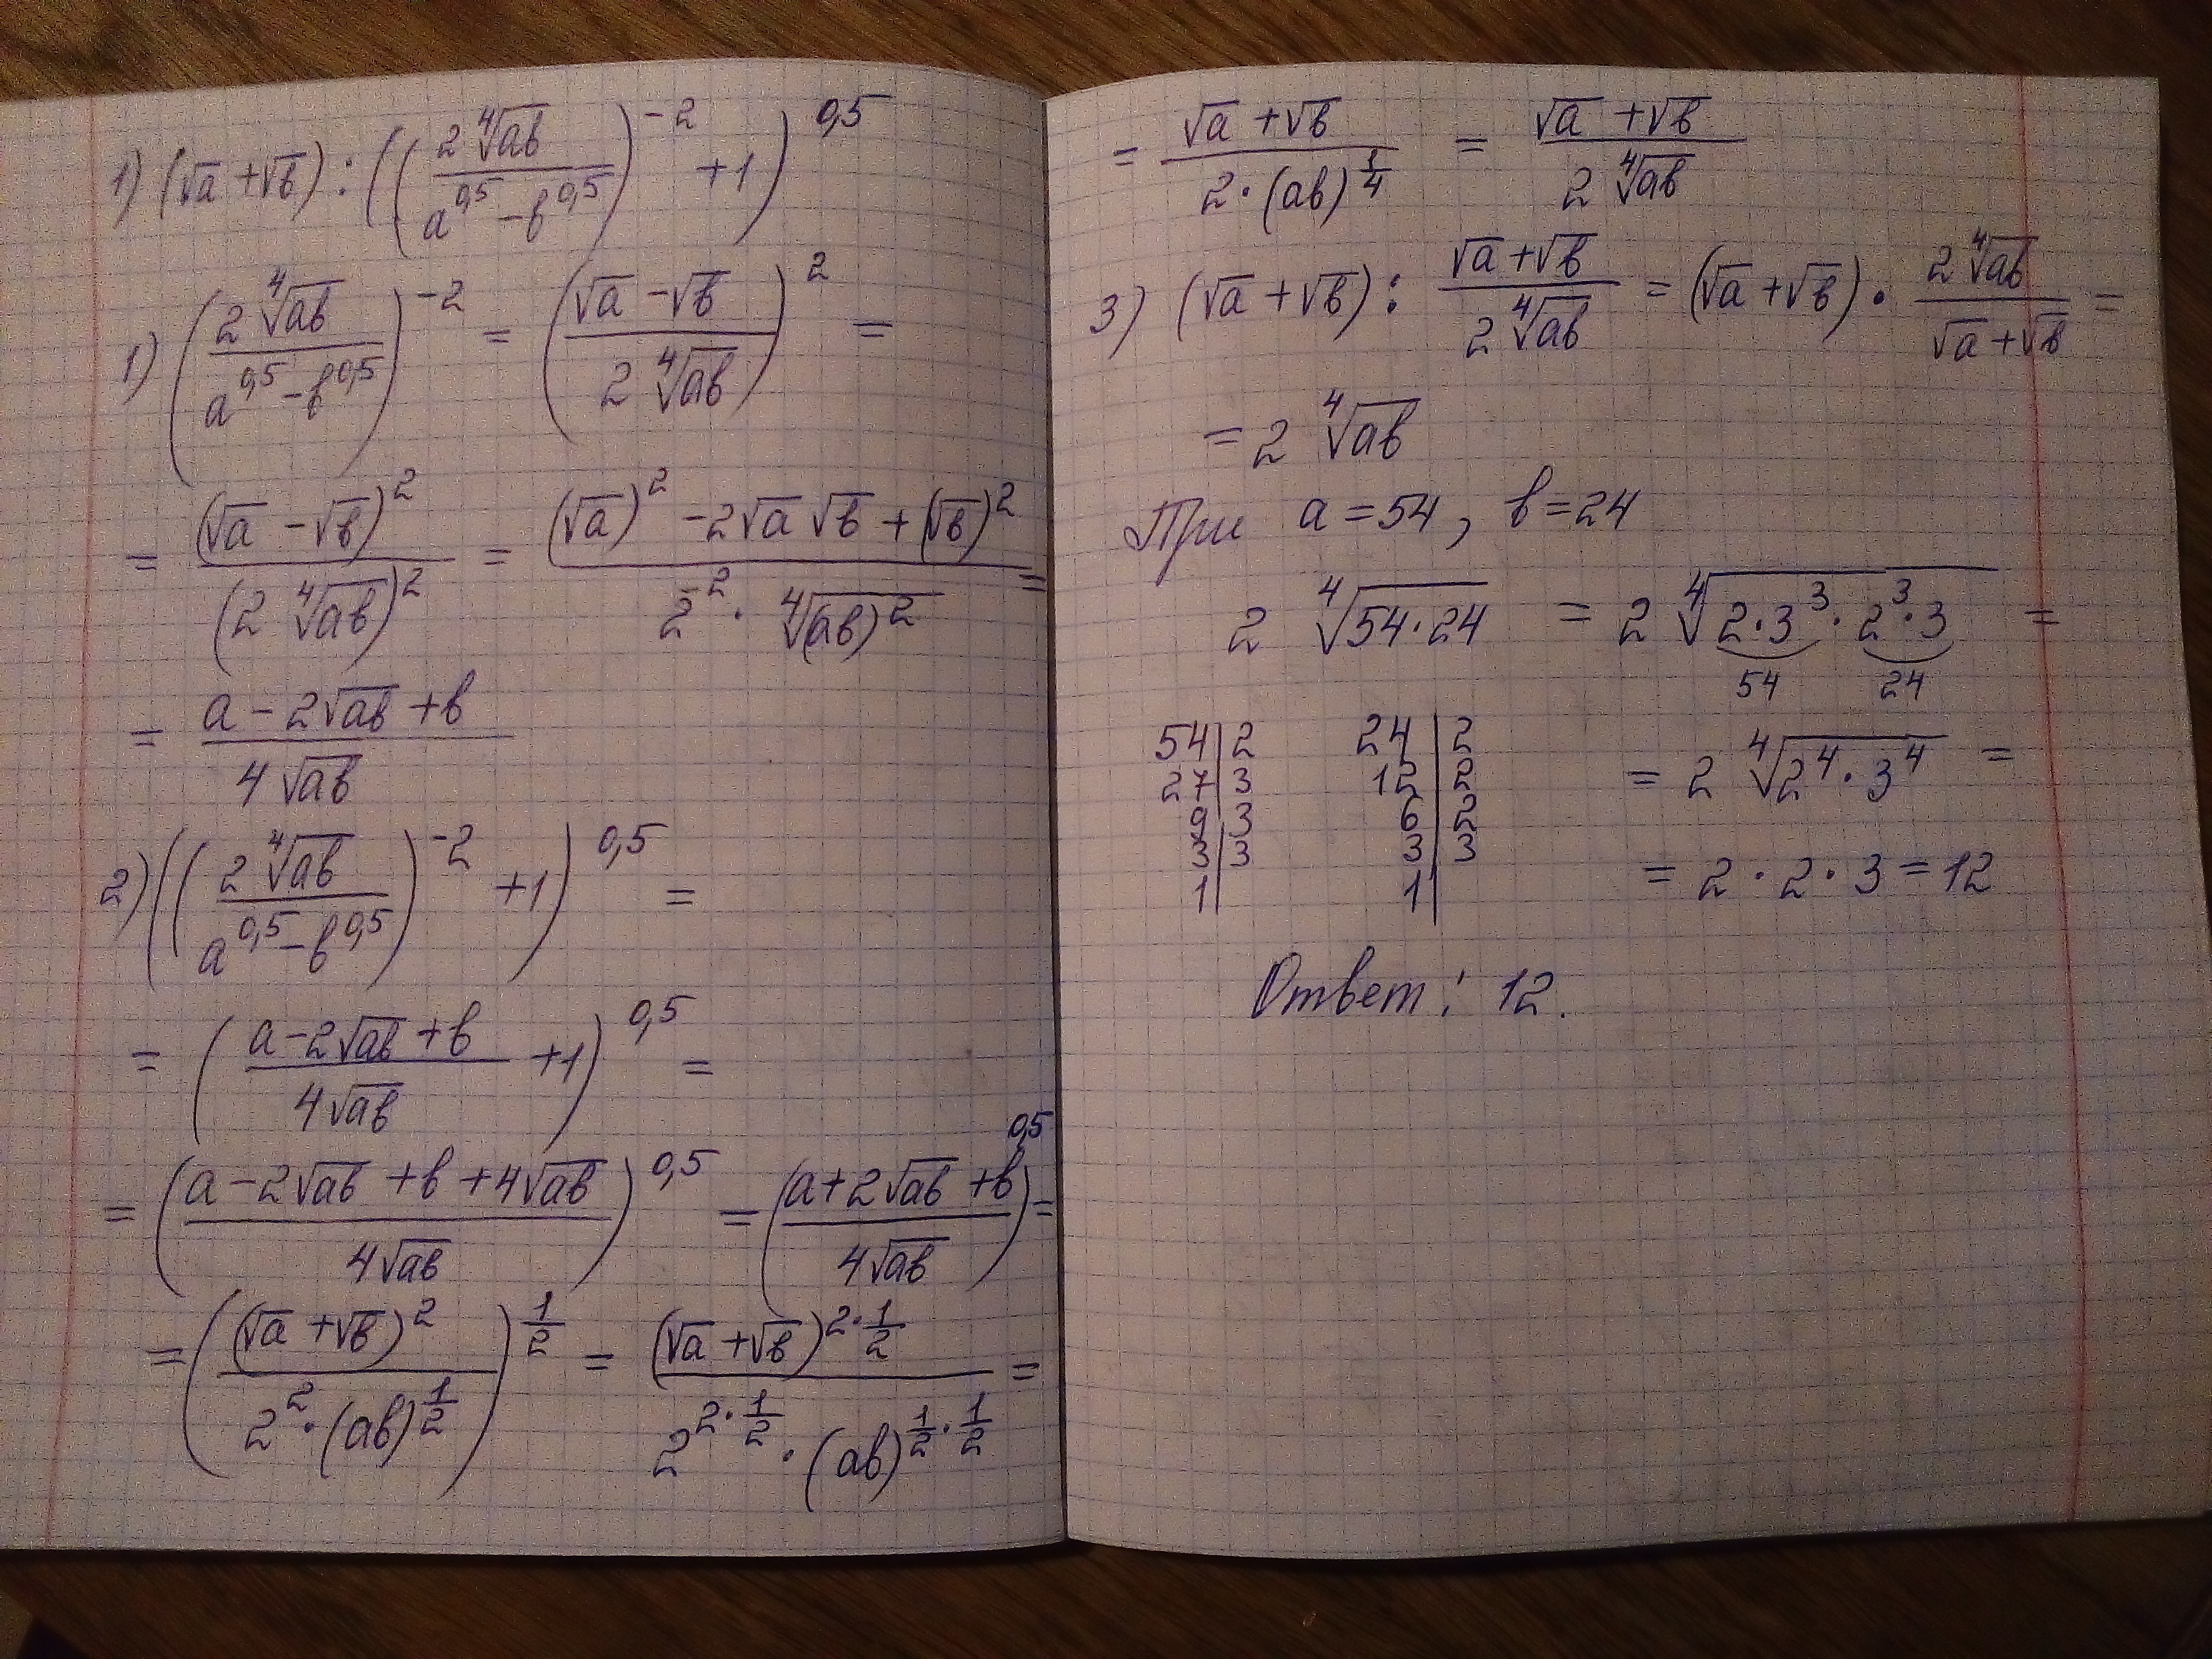 1) (√a + √b) : ((2 ⁴√ab / (a^0,5 − b^0,5))^−2 + 1)^0,5
1) (2 ⁴√ab / (a^0,5 − b^0,5))^−2 = ((√a − √b) / (2 ⁴√ab))^2 =
= (√a − √b)^2 / (2 ⁴√ab)^2 = ((√a)^2 − 2√a √b + (√b)^2) / (2^2 · ⁴√(ab)^2) =
= (a − 2√ab + b) / (4√ab)
2) ((2 ⁴√ab / (a^0,5 − b^0,5))^−2 + 1)^0,5 =
= ((a − 2√ab + b) / (4√ab) + 1)^0,5 =
= ((a − 2√ab + b + 4√ab) / (4√ab))^0,5 = ((a + 2√ab + b) / (4√ab))^0,5 =
= ((√a + √b)^2 / (2^2 · (ab)^(1/2)))^(1/2) = (√a + √b)^(2·1/2) / (2^(2·1/2) · (ab)^(1/2·1/2)) =
= (√a + √b) / (2 · (ab)^(1/4)) = (√a + √b) / (2 ⁴√ab)
3) (√a + √b) : (√a + √b) / (2 ⁴√ab) = (√a + √b) · (2 ⁴√ab) / (√a + √b) =
= 2 ⁴√ab
При a = 54, b = 24
2 ⁴√54·24 = 2 ⁴√2·3^3·2^3·3 =
54 24
54|2 24|2
27|3 12|2
9|3 6|2
3|3 3|3
1| 1|
= 2 ⁴√2^4·3^4 =
= 2 · 2 · 3 = 12
Ответ: 12.